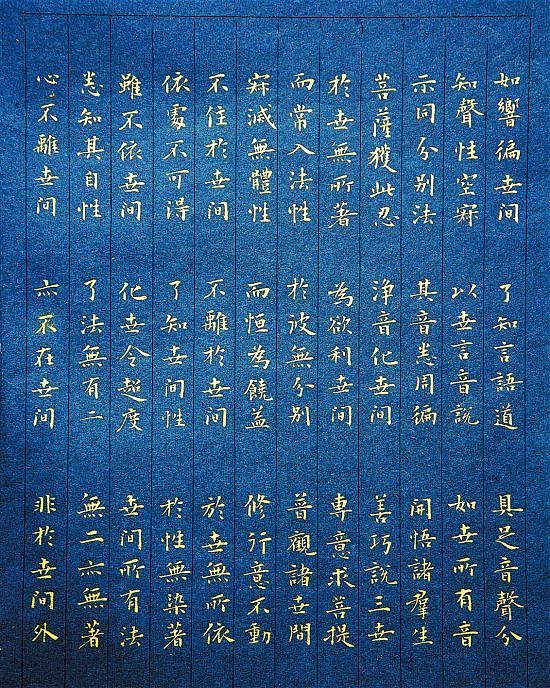 如響徧世間 了知言語道 具足音聲分
知聲性空寂 以世言音說 如世所有音
示同分別法 其音悉周徧 開悟諸羣生
菩薩獲此忍 淨音化世間 善巧說三世
於世無所著 為欲利世間 專意求菩提
而常入法性 於彼無分別 普觀諸世間
寂滅無體性 而恒為饒益 修行意不動
不住於世間 不離於世間 於世無所依
依處不可得 了知世間性 於性無染著
雖不依世間 化世令超度 世間所有法
悉知其自性 了法無有二 無二亦無著
心不離世間 亦不在世間 非於世間外